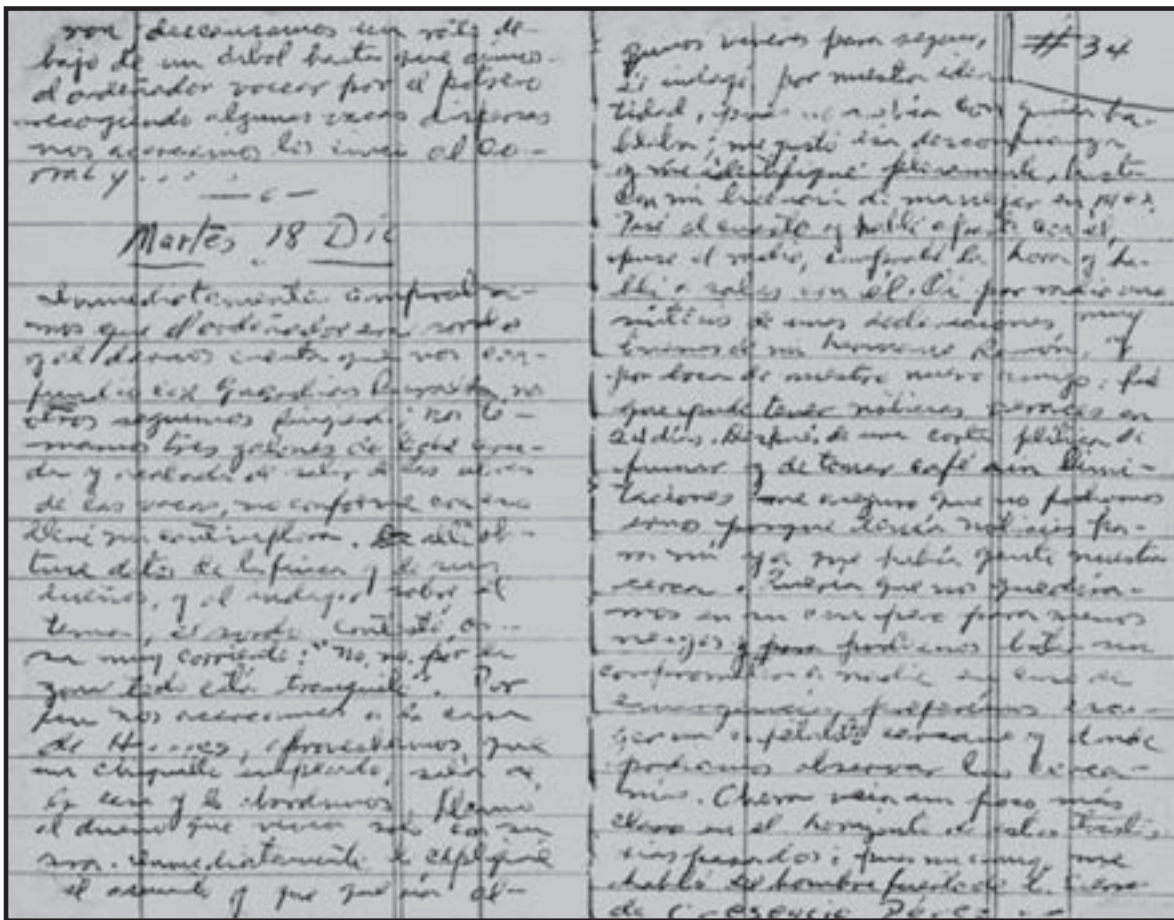 ron descansamos un rato de-
bajo de un árbol hasta que oimos
al ordeñador vocear por el potrero
recogiendo algunas vacas dispersas
nos acercamos los cinco al co-
rral y . . . .
Martes, 18 Dic
Inmediatamente comproba-
mos que el ordeñador era sordo
y al darnos cuenta que nos con-
fundía con Guardias Rurales, no
otros seguimos fingiendo; nos to-
mamos tres galones de leche cru-
da y acabada de salir de las ubres
de las vacas, no conforme con eso
llené mi cantimplora. De allí ob-
tuve datos de la finca y de sus
dueños, y al indagar sobre el
tema, el sordo contestó, co-
sa muy corriente: "No, no, por la
zona todo está tranquilo". Por
fin nos acercamos a la casa
de H....es, aprovechamos que
un chiquillo empleado, salía de
la casa y lo abordamos, llamó
al dueño que vivía solo con su
sra. inmediatamente le expliqué
el asunto y que quería al-
gunos víveres para seguir, #34
El indagó por nuestra iden
tidad, pues no sabía con quien ha-
blaba; me gustó esa desconfianza
y me identifiqué plenamente, hasta
con mi licencia de manejar en Mex.
Trajé al cuarto y hablé a fondo con él,
puse el radio, comprobé la hora y ha-
blé a solas con él. Oí por radio una
síntesis de unas declaraciones muy
buenas de mi hermano Ramón, y
por boca de nuestro nuevo amigo, fué
que pude tener noticias veraces en
24 días. Después de una corta plática de
fumar y de tomar café sin limi-
taciones me aseguró que no podíamos
irnos porque tenía noticias pa-
ra mí y que me había gente nuestra
cerca. Quería que nos quedára-
mos en su campo para menos
riesgos y para podernos batir sin
comprometer a nadie en caso de
emergencia, preferimos esco-
ger un cercano y donde
podíamos observar las cerca-
nías. Ahora veía un poco más
claro en el horizonte de estos tristes
días pasados; pues mi amigo me
habló del hombre fuerte de la Sierra
de Cresencio Pérez